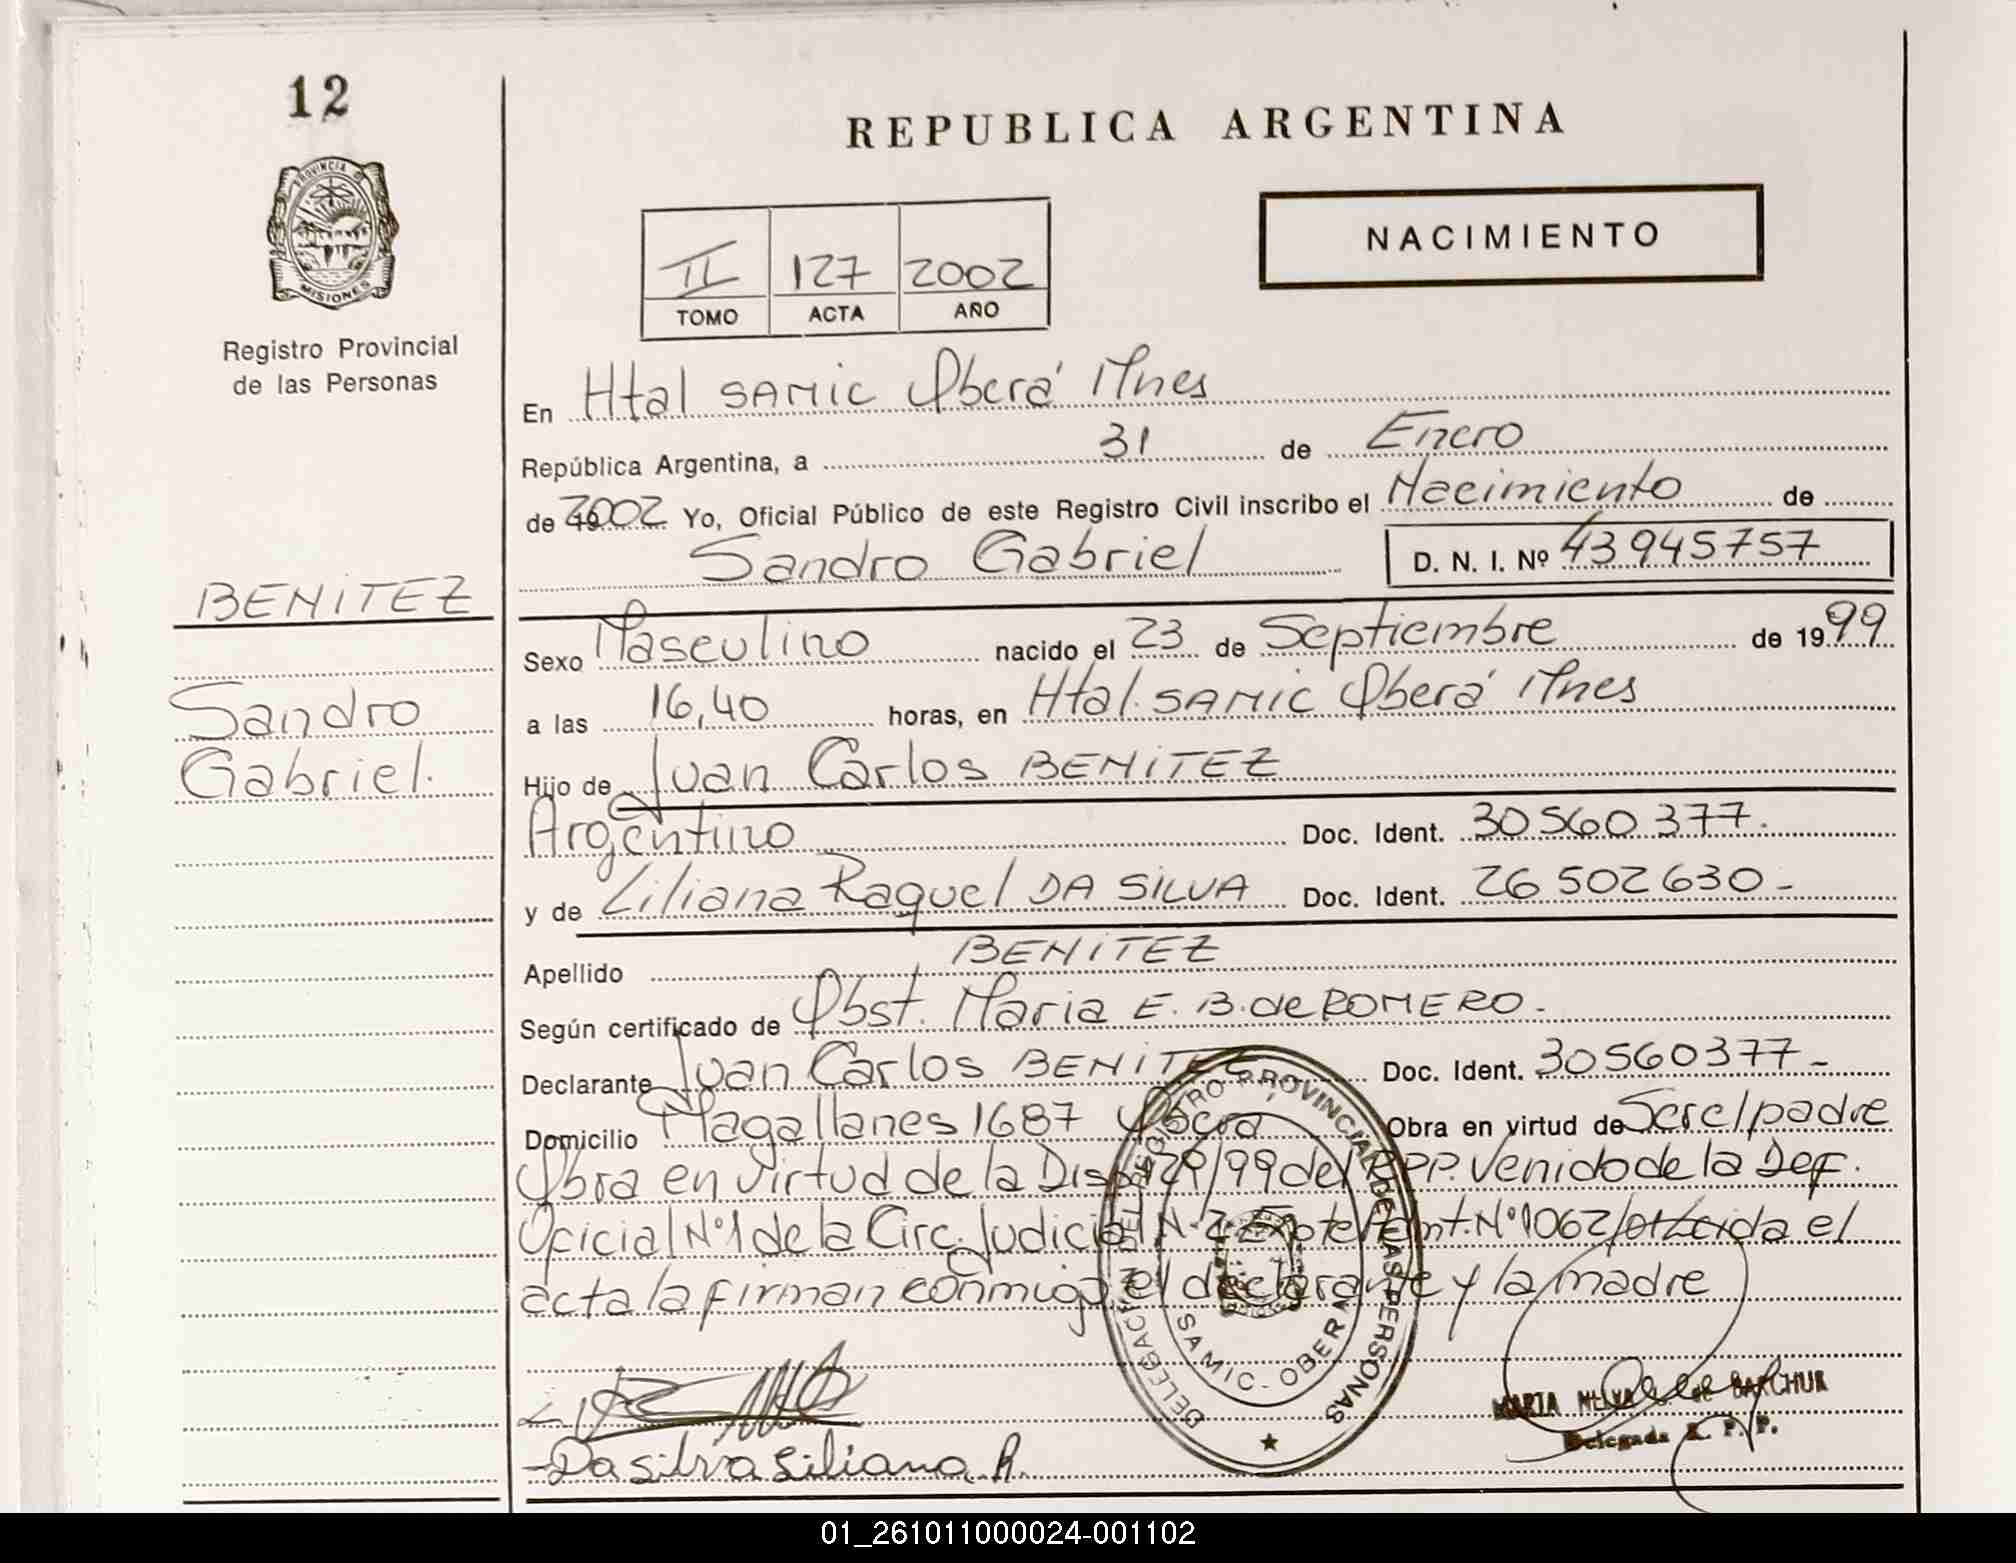 12
REPUBLICA ARGENTINA
PROVINCIA D
MISIONES
Registro Provincial
de las Personas
NACIMIENTO
II 127 2002
TOMO ACTA AÑO
En Htal SAMIC Oberá Mnes
República Argentina, a 31 de Enero
de 2002 Yo, Oficial Público de este Registro Civil inscribo el Nacimiento de
Sandro Gabriel D. N. I. Nº 43945757
BENITEZ
Sandro
Gabriel.
Sexo Masculino nacido el 23 de Septiembre de 1999
a las 16,40 horas, en Htal. SAMIC Oberá Mnes
Hijo de Juan Carlos BENITEZ
Argentino Doc. Ident. 30560377.
y de Liliana Raquel DA SILVA Doc. Ident. 26502630-
Apellido BENITEZ
Según certificado de Obst. Maria E. B. de ROMERO.-
Declarante Juan Carlos BENITEZ Doc. Ident. 30560377-
Domicilio Magallanes 1687 Obera Obra en virtud de Ser el padre
Obra en virtud de la Disp 129/99 del RPP. Venido de la Def.
Oficial Nº1 de la Circ. Judicial N. 2 Expte Nº1062/01 Leida el
acta la firman conmigo el declarante y la madre
DELEGACION DEL REGISTRO PROVINCIAL DE LAS PERSONAS
SAMIC - OBERA
Da silva Liliana R.
MARIA DE BARCHUK
Delegada R. P. P.
01_261011000024-001102